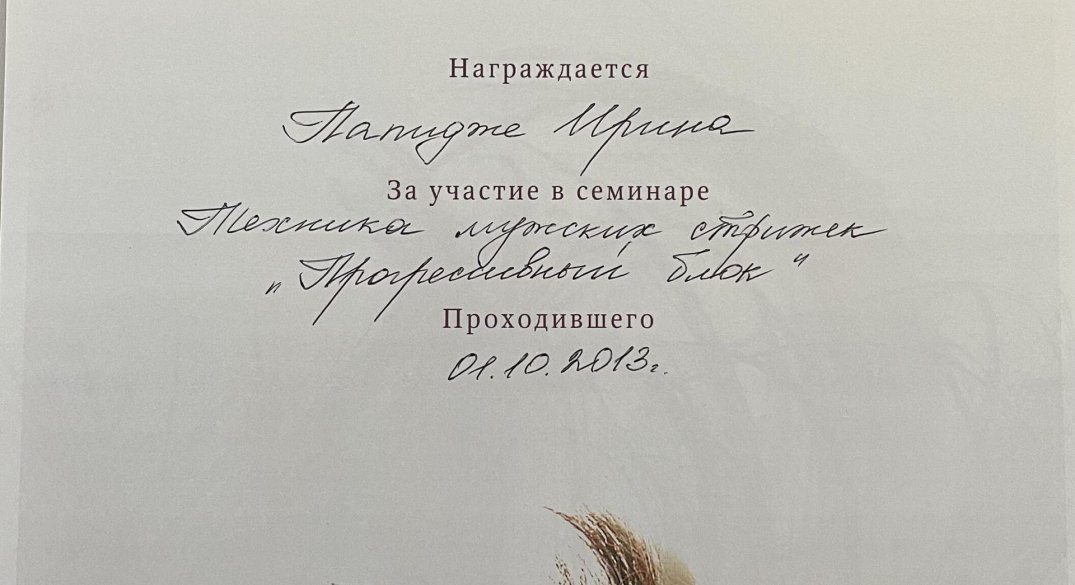 Награждается
Папидже Ирина
За участие в семинаре
Техника мужских стрижек
„Прогрессивный блок“
Проходившего
01.10.2013г.